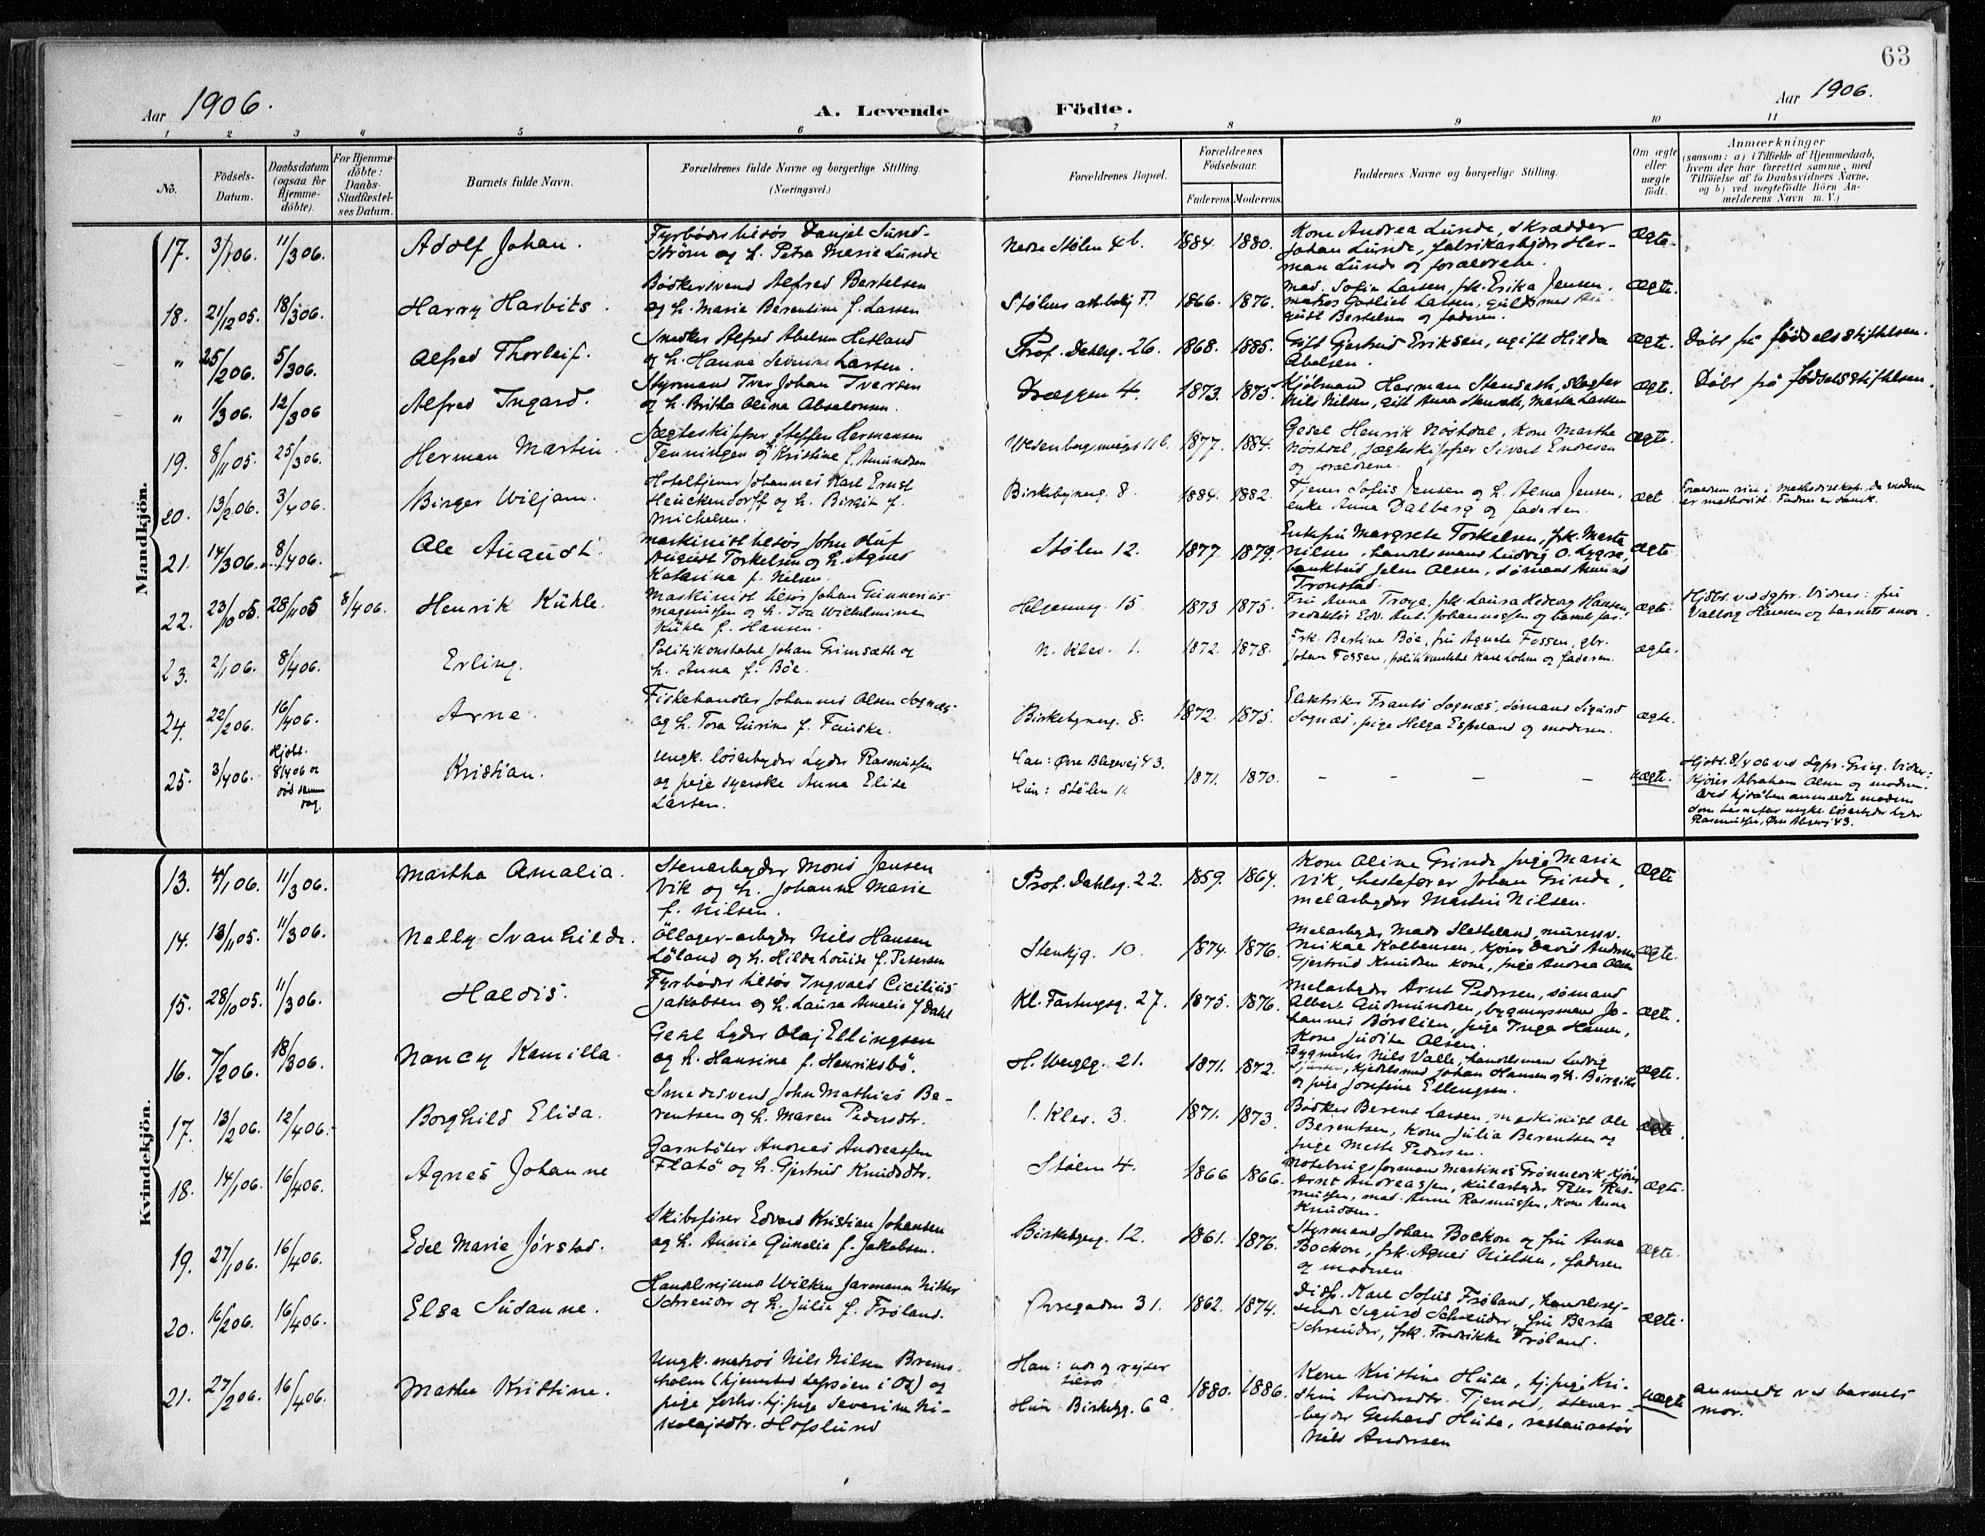 63
Aar 1906.
A. Levende Födte.
Aar 1906.
1 2 3 4 5 6 7 8 9 10 11
No.
Födsels-Datum.
Daabsdatum (ogsaa for Hjemme-döbte).
For Hjemme-döbte: Daabs-Stadfæstel-ses Datum.
Barnets fulde Navn.
Forældrenes fulde Navne og borgerlige Stilling. (Næringsvei.)
Forældrenes Bopæl.
Forældrenes Födselsaar.
Faderens Moderens
Faddernes Navne og borgerlige Stilling.
Om ægte eller uægte födt.
Anmærkninger
(saasom: a) i Tilfælde af Hjemmedaab, hvem der har forrettet samme, med Tilföielse af to Daabsvidners Navne, og b) ved uegtefödte Börn Anmelderens Navn m. V.)
Mandkjön.
17. 3/1 06. 11/3 06. Adolf Johan.
Fyrbøder tilsøs Danjel Sund-
strøm og h. Petra Marie Lunde
Nedre Stølen 4b. 1884. 1880.
Kone Andrea Lunde, skrædder
Johan Lunde, fabrikarbejder Her-
man Lunde og forældrene.
ægte.
18. 21/12 05. 18/3 06. Harry Harbits.
Bødkersvend Alfred Bertelsen
og h. Marie Berentine f. Larsen.
1866. 1876.
Mad. Sofie Larsen, frk. Erika Jensen,
matros Gotlieb Larsen, guldsmed
Bertelsen og faderen.
ægte.
" 25/2 06. 5/3 06. Alfred Thorleif.
Snedker Alfred Abelsen Hetland
og h. Hanna Severine Larsen.
Prof. Dahlsg. 26. 1868. 1885.
Gift Gertrud Eriksen, ugift Hilda
Abelsen.
ægte. Døbt på fødselsstiftelsen.
" 1/3 06. 12/3 06 Alfred Ingard.
Styrmand Iver Johan Iversen
og h. Britha Oline Absalonsen.
Dræggen 4. 1873. 1875.
Hjólmand Herman Stenseth, slagter
Nils Nilsen, gift Anna Stenseth, Marta Larsen
ægte. Døbt på fødselsstiftelsen.
19. 8/11 05. 25/3 06. Herman Martin.
Jægteskipper Steffen Hermansen
Tenningen og Kristine f. Amundsen
1877. 1884.
Gesel Henrik Nøstdal, kone Marthe
Nøstdal, jægteskipper Sivert Endresen
og forældrene.
ægte.
20. 13/2 06. 3/4 06. Birger Wiljam.
Hoteltjener Johannes Karl Ernst
Heuckendorff og h. Birgit f.
Michelsen.
Birkebeynerg. 8. 1884. 1882.
Tjener Sofus Jensen og h. Alma Jensen,
enke Anna Dalberg og faderen.
ægt
er methodist. Faderen er dansk.
21. 14/3 06. 8/4 06. Ole August.
Maskinist tilsøs John Oluf
August Torkelsen og h. Agnes
Katarina f. Nilsen.
Stølen 12. 1877. 1879.
Enkefru Margrete Torkelsen, frk. Marta
Nilsen, handelsmand Ludvig O. Lygre,
Jelen Olsen, sømand Amund
Tronstad.
ægte
22. 23/10 05. 28/11 05 8/4 06. Henrik Kühle.
Maskinist tilsøs Johan Gunnerius
Magnussen og h. Ida Wilhelmine
Kühle f. Hansen.
Helgesensg. 15. 1873 1875.
Fru Anna Troye, frk. Laura Hedvig Hansen,
redaktør Edv. Ant. Johannessen og barnets far.
ægte.
Hjdbt. ved sgpr. Vidner: fru
Valborg Hansen og barnets mor.
23. 2/1 06. 8/4 06. Erling.
Politikonstabel Johan Grimsæth og
h. Anna f. Bøe.
N. Klev. 1. 1872. 1878.
Frk. Bertine Bøe, fru Agnete Fossen, gbr.
Johan Fossen, politikonstabel Karl Lohm og faderen.
ægte.
24. 22/2 06. 16/4 06. Arne.
Fiskehandler Johannes Olsen Sognæs
og h. Tora Gurine f. Fauske.
Birkebeynerg. 8. 1872. 1875.
Elektriker Frants Sognæs, sømand Sigurd
Sognæs, pige Helga Espeland og moderen.
ægte.
25. 3/4 06. Hjdbt. 8/4 06 død samme dag. Kristian.
Ungk. løsarbejder Lyder Rasmussen
og pige syerske Anna Elise
Larsen.
Han: Øvre Blegevej 43.
Hun: Stølen 11
1871. 1870. – – – – – uægte.
Hjdbt. 8/4 06 ved sgpr. Grieg. Vidner:
Kjører Abraham Olsen og moderen.
som barnefar ungk. løsarbejder Lyder
Rasmussen, Øvre Blegevej 43.
Kvindekjön.
13. 4/1 06. 11/3 06. Martha Amalia.
Stenarbejder Mons Jensen
Vik og h. Johanne Marie
f. Nilsen.
Prof. Dahlsg. 22. 1859. 1864.
Kone Oline Grinde, pige Marie
Vik, hestefører Johan Grinde,
melarbejder Martin Nilsen.
ægte
14. 13/11 05. 11/3 06. Nelly Svanhilde.
Øllager-arbejder Nils Hansen
Løland og h. Hilde Louise f. Petersen
Stenkjg. 10. 1874. 1876.
Melarbejder Mads Sletteland, murersv.
Mikal Kolbensen, kjører David Andersen
Gjertrud Knudsen kone, pige Andrea Olsen
ægte.
15. 28/10 05. 11/3 06. Haldis.
Fyrbøder tilsøs Ingvald Cicilius
Jakobsen og h. Laura Amalia f. Dahl
Kl. Fartugsg. 27. 1875. 1876.
Melarbejder Arnt Pedersen, sømand
Albert Gudmundsen, bygningsmand Jo-
hannes Børslien, pige Inga Hansen,
Kone Judite Olsen.
ægte.
16. 7/2 06. 18/3 06. Nancy Kamilla.
Gesel Lyder Olaj Ellingsen
og h. Hansine f. Henriksbö.
H. Wergelg. 21. 1871. 1872.
Bygmester Nils Valle, handelsmand Ludvig
kjedelsmed Johan Hansen og h. Birgitte
og pige Josefine Ellingsen.
ægte.
17. 13/2 06. 12/4 06. Borghild Elida.
Smedesvend John Mathias Be-
rentsen og h. Maren Pedersdtr.
1. Klev. 3. 1871. 1873.
Bødker Berent Larsen, maskinist Ole
Berentsen, kone Julia Berentsen og
pige Mette Pedersen.
ægte.
18. 14/1 06. 16/4 06. Agnes Johanne
Garnbøter Andreas Andreassen
Flatö og h. Gjertrud Knudsdtr.
Stølen 4. 1866 1866.
Notebrugsformand Martines Grønnevik, kjører
Arnt Andreassen, kularbejder Peter Ras-
mussen, mad. Anna Rasmussen, kone Anna
Knudsen.
ægte.
19. 27/1 06. 16/4 06. Edel Marie Jørstad.
Skibsfører Edvard Kristian Johansen
og h. Annie Gunelie f. Jakobsen.
Birkebeyg. 12. 1861. 1876.
Styrmand Johan Bockon og fru Anna
Bockon, frk. Agnes Nielsen, faderen
og moderen
ægte.
20. 16/2 06. 16/4 06. Elsa Susanne.
Handelsrejsend Wilken Jarmann Nitter
Schreuder og h. Julie f. Frøland.
Øvregaden 31. 1862. 1874.
Disp. Karl Sofus Frøland, handelsrej-
sende Sigurd Schreuder, fru Berta
Schreuder, frk. Fredrikke Frøland.
ægte.
21. 27/2 06. 16/4 06. Martha Kristine.
Ungk. matros Nils Nilsen Brems-
holm (hjemsted Lepsöen i Os) og
pige forhv. tj.pige Severine Ni-
kolajsdtr. Hofslund
Han: ude og rejser
tilsøs
Hun: Birkebg. 6a.
1880. 1886.
Kone Kristine Huse, tj.pige Kri-
stine Andersdtr. Tjenold, stenar-
bejder Gerhard Huse, restauratør
Nils Andersen
uægte
anmeldt ved barnets
mor.